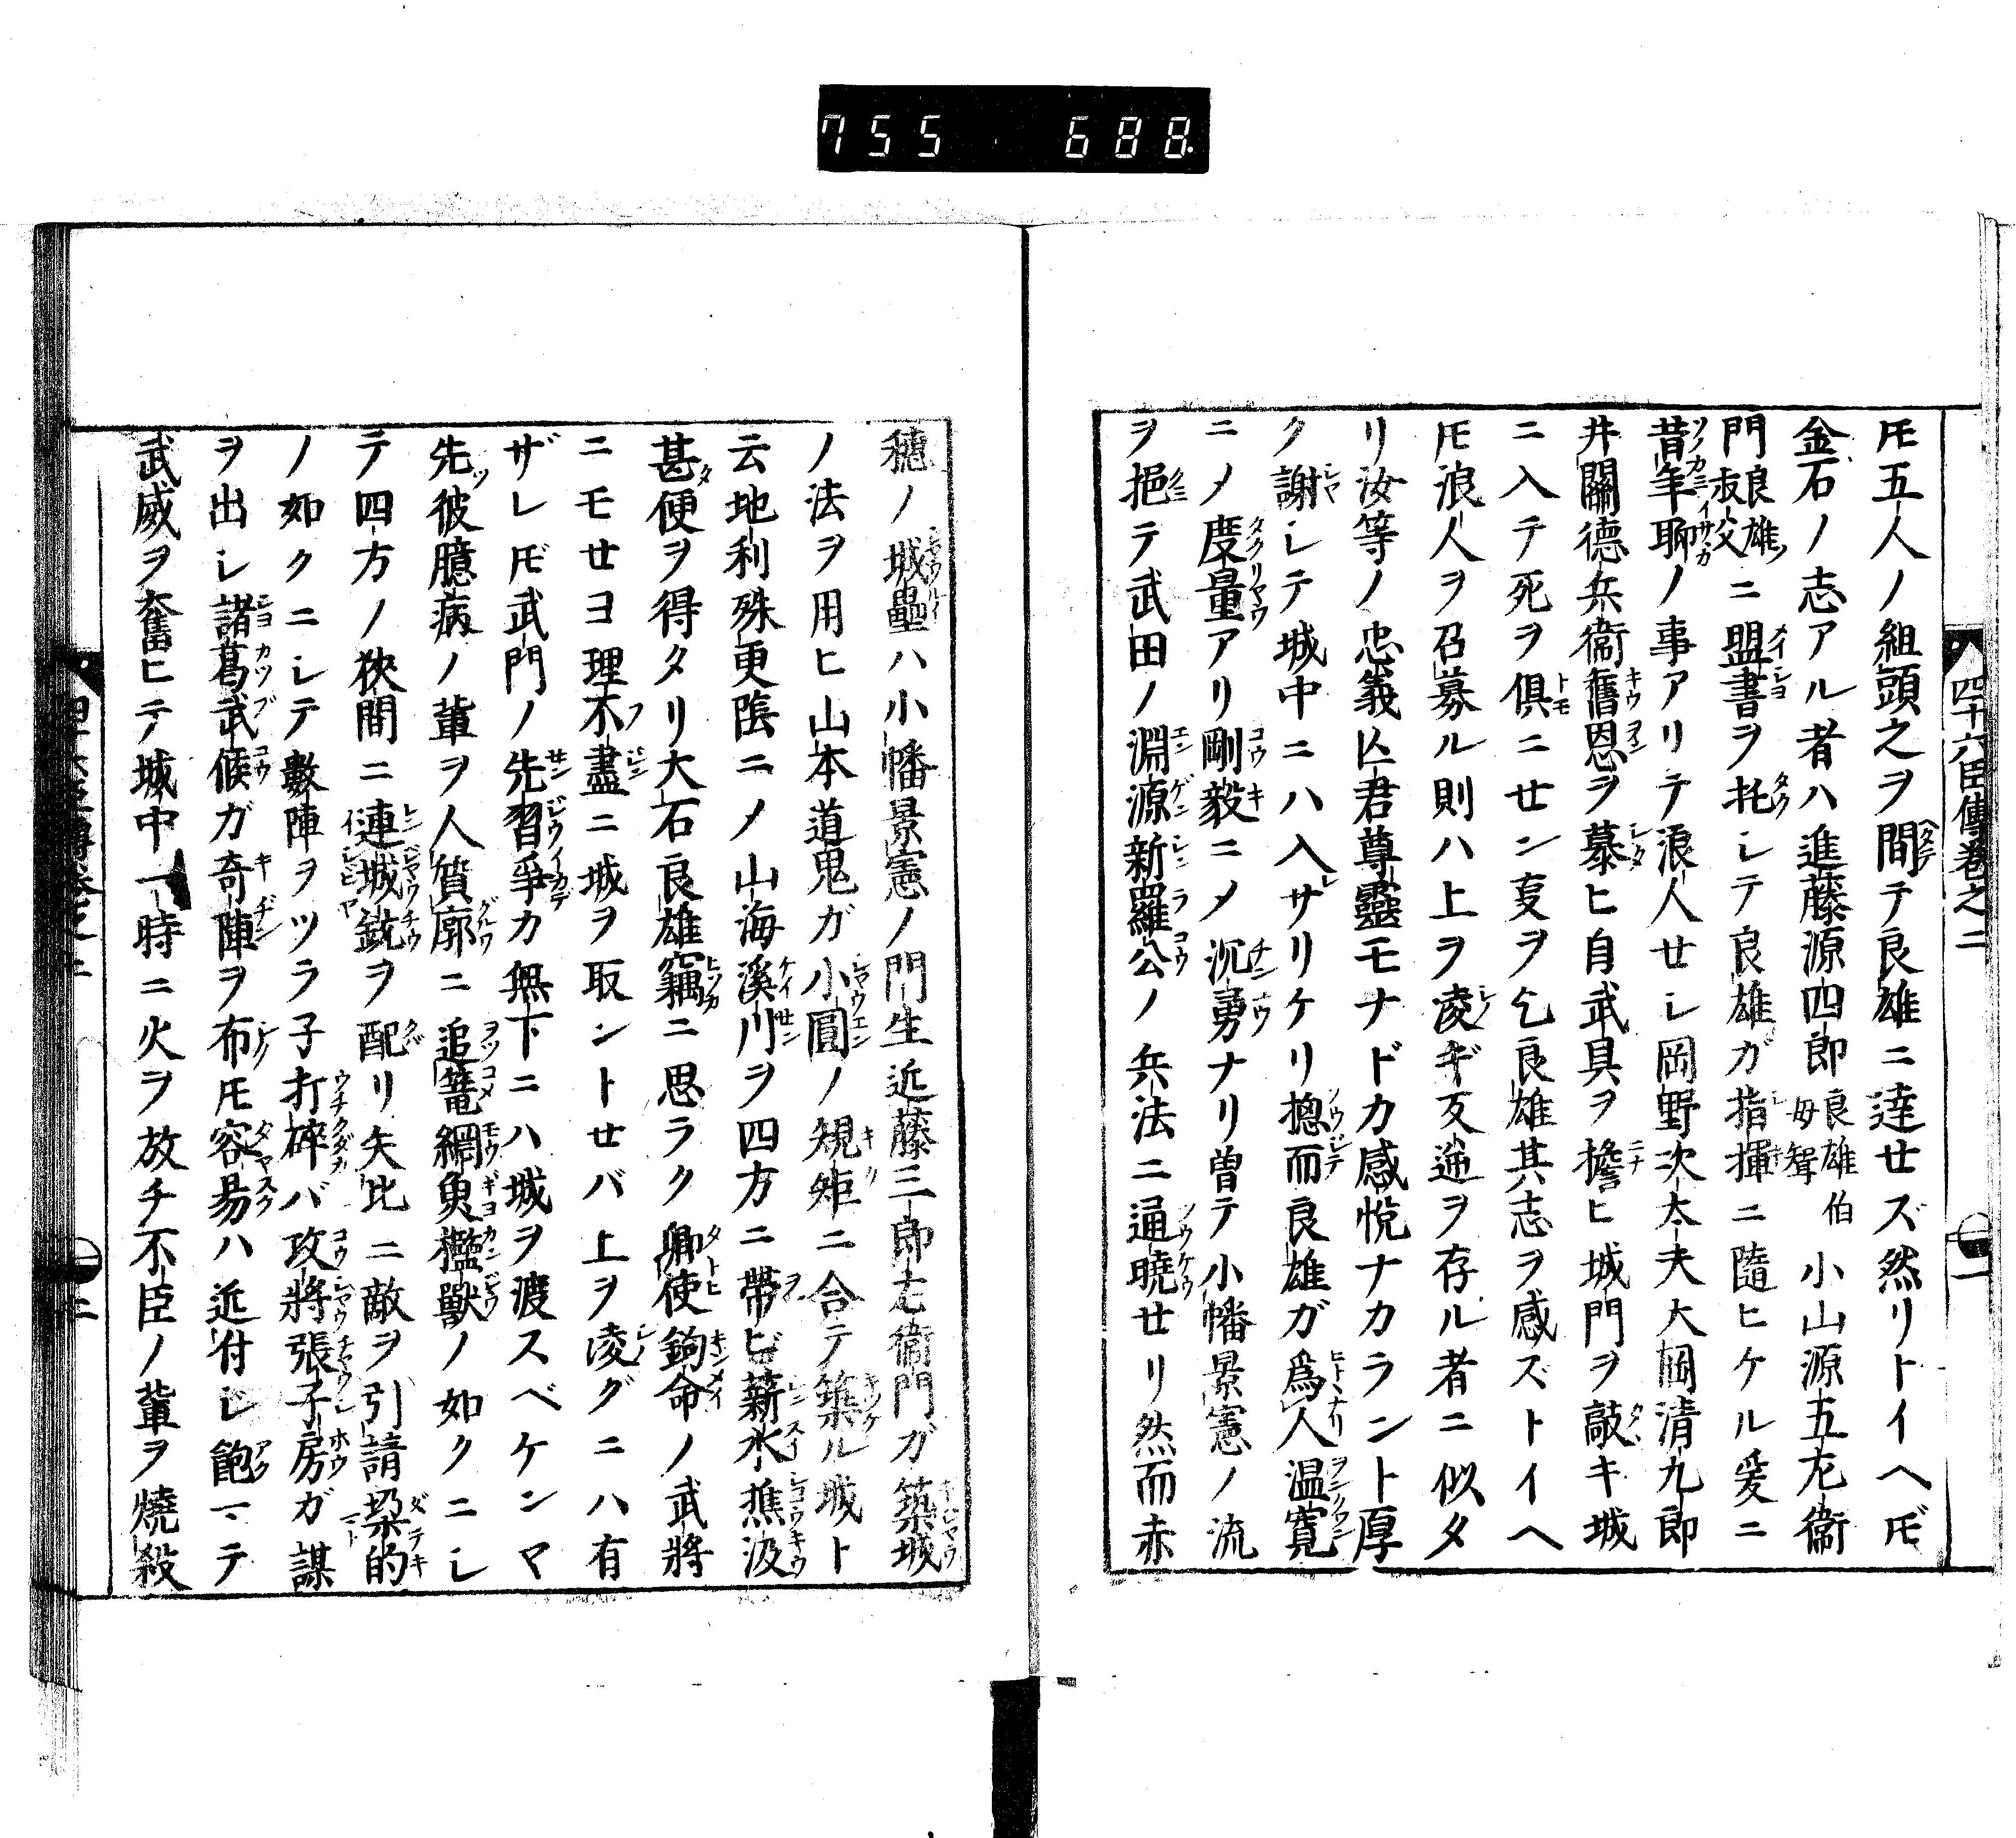 755 688
四十六臣傳卷之二
𪜈五人ノ組頭之ヲ間テ良雄ニ達せズ然リトイヘ𪜈
金石ノ志アル者ハ進藤源四郎良雄伯母聟小山源五左衞
門良雄叔父ニ盟書ヲ托シテ良雄ガ指揮ニ隨ヒケル爰ニ
昔年聊ノ事アリテ浪人せシ岡野次太夫大岡清九郎
井關德兵衞舊恩ヲ慕ヒ自武具ヲ擔ヒ城門ヲ敲キ城
ニ入テ死ヲ俱ニせン㕝ヲ乞良雄其志ヲ感ズトイヘ
𪜈浪人ヲ召募ル則ハ上ヲ凌ギ反逆ヲ存ル者ニ似タ
リ汝等ノ忠義亡君尊靈モナドカ感悅ナカラント厚
ク謝シテ城中ニハ入サリケリ摠而良雄ガ爲人温寬
ニメ度量アリ剛毅ニメ沉勇ナリ曽テ小幡景憲ノ流
ヲ挹テ武田ノ淵源新羅公ノ兵法ニ通曉せリ然而赤
穗ノ城壘ハ小幡景憲ノ門生近藤三郎左衞門ガ築城
ノ法ヲ用ヒ山本道鬼ガ小圓ノ規矩ニ合テ築ル城ト
云地利殊更隂ニメ山海溪川ヲ四方ニ帶ビ薪水樵汲
甚便ヲ得タリ大石良雄竊ニ思ラク縱使鉤命ノ武將
ニモせヨ理不盡ニ城ヲ取ントせバ上ヲ凌グニハ有
ザレ𪜈武門ノ先習爭カ無下ニハ城ヲ渡スベケンマ
先彼臆病ノ輩ヲ人質廓ニ追篭網魚檻獸ノ如クニシ
テ四方ノ狹間ニ連城銃ヲ配リ矢比ニ敵ヲ引請垜的
ノ如クニシテ數陣ヲツラ子打碎バ攻將張子房ガ謀
ヲ出シ諸葛武候ガ奇陣ヲ布𪜈容易ハ近付じ飽マテ
武威ヲ奮ヒテ城中一時ニ火ヲ放チ不臣ノ輩ヲ燒殺